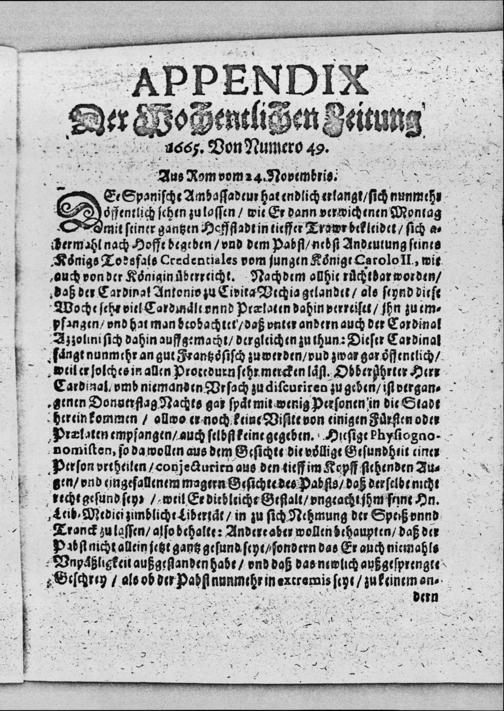 APPENDIX
Der Wochentlichen Zeitung
1665. Von Numero 49.
Autz Rom vom 24. Novembris.
DEr Spanische Ambassadeur hat endlich erlangt / sich nunmehr
öffentlich sehen zu lassen / wie Er dann verwichenen Montag
mit seiner gantzen Hoffstadt in tieffer Trawr bekleidet / sich a-
bermahl nach Hoffe begeben / vnd dem Pabst / nebst Andeutung seines
Königs Todsfals Credentiales vom jungen Könige Carolo II., wie
auch von der Königin überreicht. Nachdem allhie rüchtbar worden /
daß der Cardinal Antonio zu Civita Vechia gelandet / als seynd diese
Woche sehr viel Cardinäle vnnd Prælaten dahin verreiset / jhn zu em-
pfangen / vnd hat man beobachtet / daß vnter andern auch der Cardinal
Azzolini sich dahin auffgemacht / dergleichen zu thun: Dieser Cardinal
fängt nunmehr an gut Frantzösisch zu werden / vnd zwar gar öffentlich /
weil er solches in allen Proceduren sehr mercken läst. Obberührter Herr
Cardinal, vmb niemanden Vrsach zu discuriren zu geben / ist vergan-
genen Donnerstag Nachts gar spät mit wenig Personen in die Stadt
herein kommen / allwo er noch keine Visite von einigen Fürsten oder
Prælaten empfangen / auch selbst keine gegeben. Hiesige Physiogno-
nomisten, so da wollen aus dem Gesichte die völlige Gesundheit einer
Person vrtheilen / conjecturirn aus den tieff im Kopff stehenden Au-
gen / vnd eingefallenem magern Gesichte des Pabsts / daß derselbe nicht
recht gesund seye / weil Er die bleiche Gestalt / vngeacht jhm seyne Hn.
Leib-Medici zimbliche Libertät / in zu sich Nehmung der Speiß vnnd
Tranck zu lassen / also behalte: Andere aber wollen behaupten / daß der
Pabst nicht allein jetzt gantz gesund seye / sondern das Er auch niemahls
Vnpäßligkeit außgestanden habe / vnd daß das newlich außgesprengte
Geschrey / als ob der Pabst nunmehr in extremis seye / zu keinem an-
dern